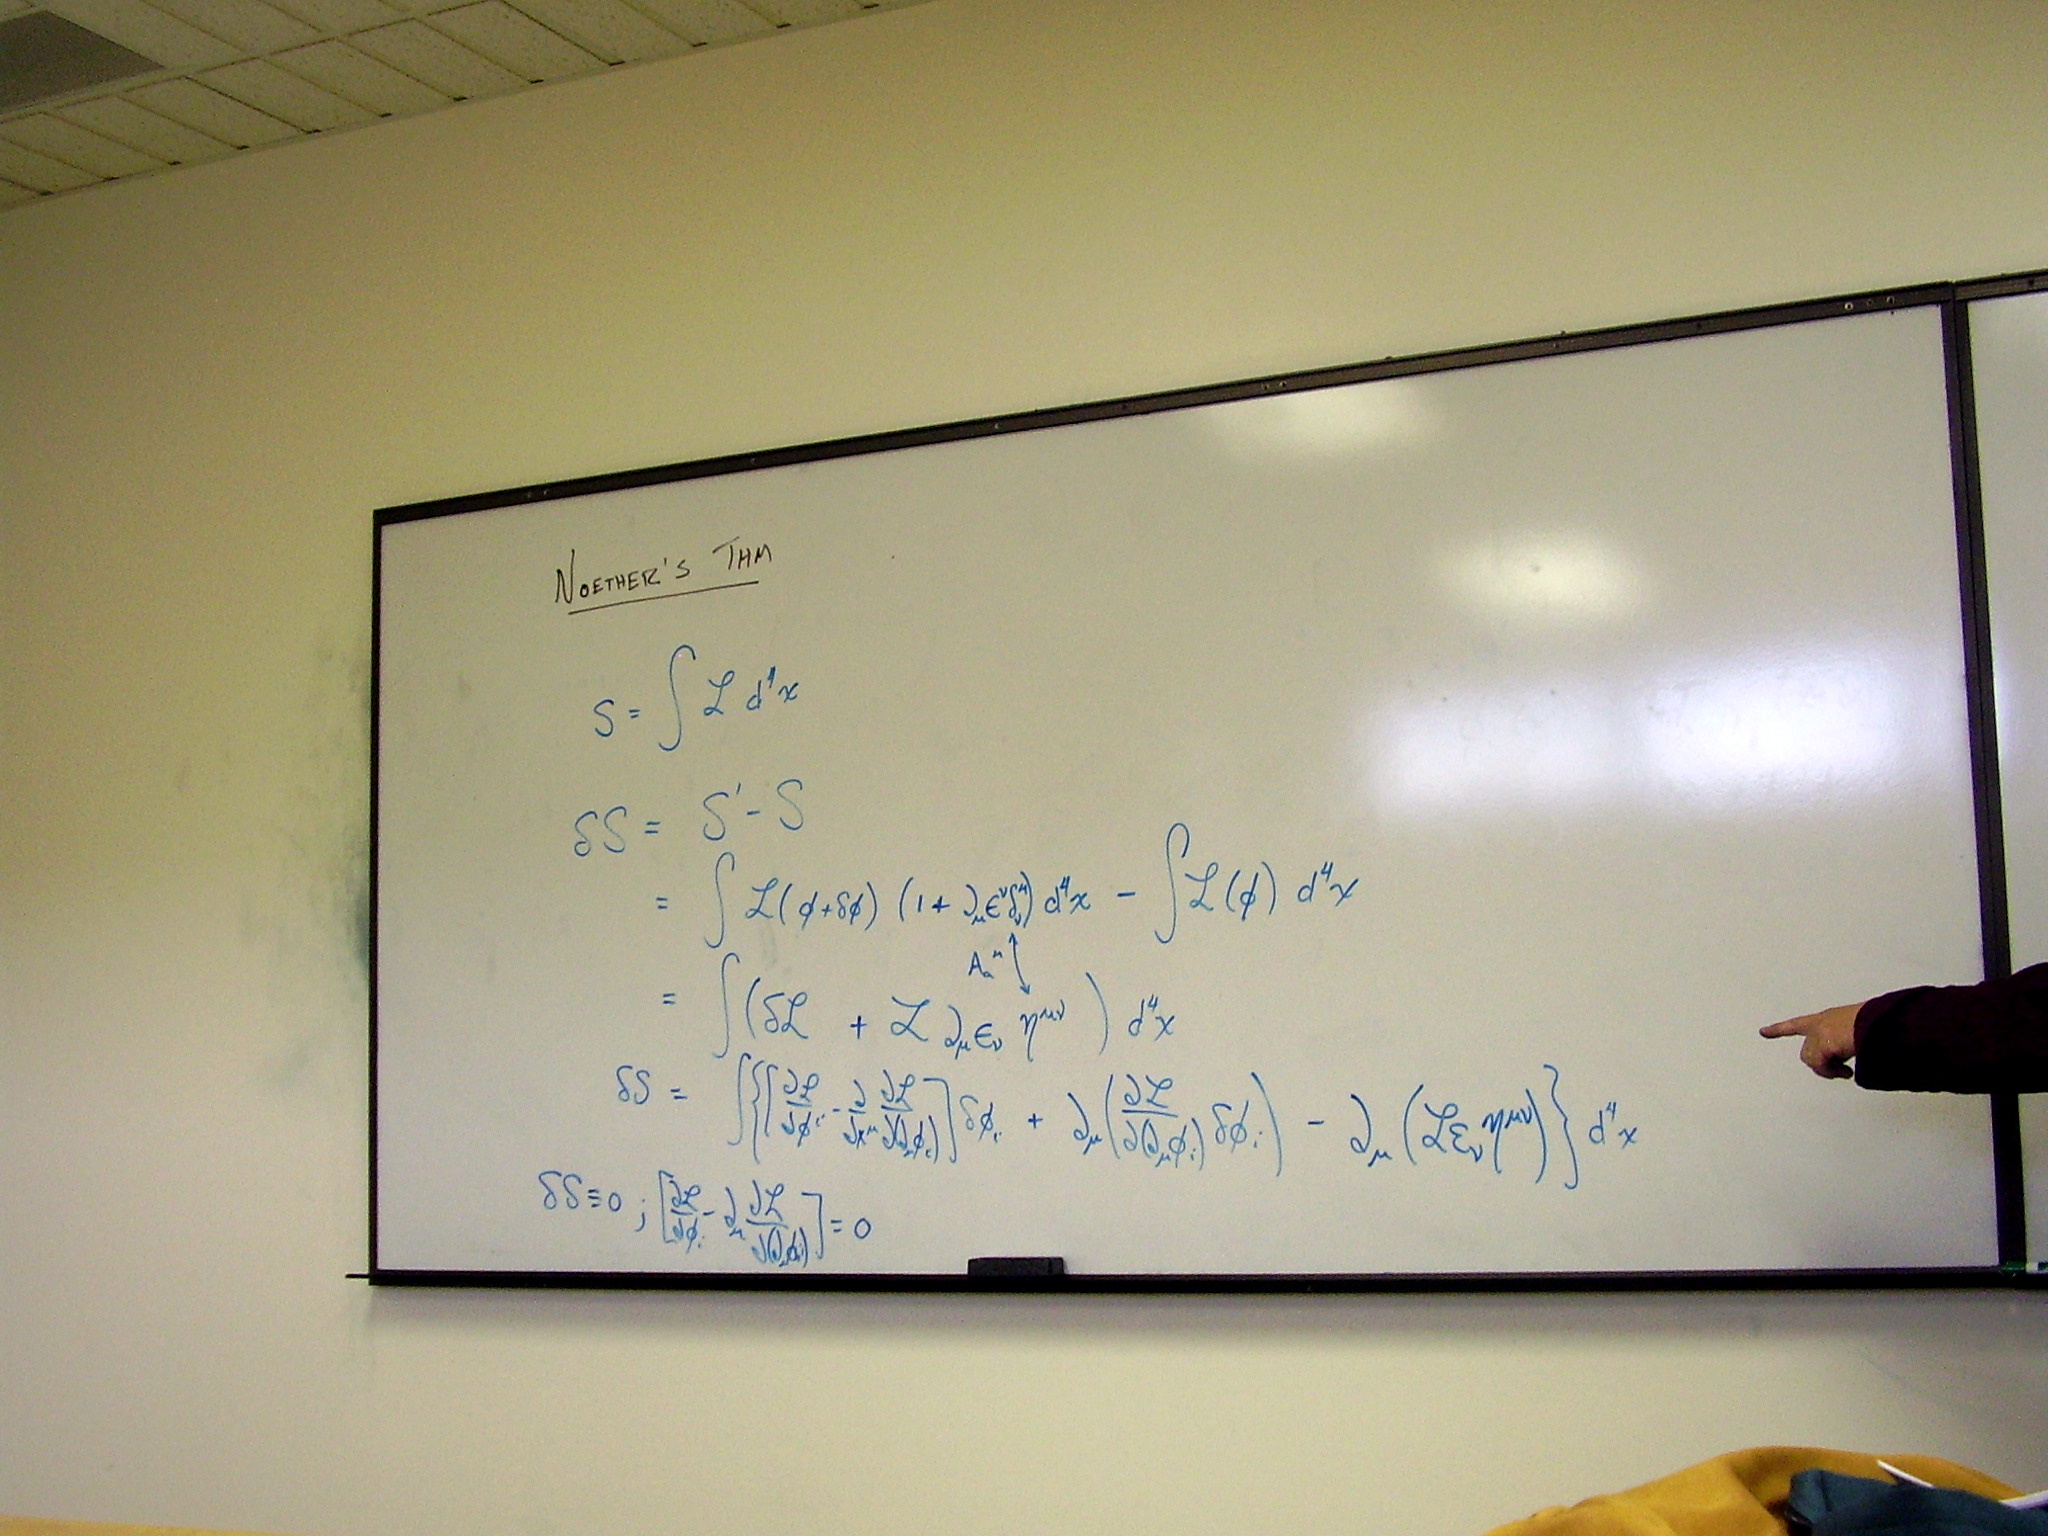 NOETHER'S THM
S = ∫ ℒ d⁴x
δS = S' - S
= ∫ ℒ(ϕ+δϕ) (1 + ∂_μ ε^ν δ_ν^μ) d⁴x - ∫ ℒ(ϕ) d⁴x
A_a^μ
= ∫ (δℒ + ℒ ∂_μ ε_ν η^{μν}) d⁴x
δS = ∫ {[∂ℒ/∂ϕ_i - ∂/∂x^μ ∂ℒ/∂(∂_μϕ_i)] δϕ_i + ∂_μ (∂ℒ/∂(∂_μϕ_i) δϕ_i) - ∂_μ (ℒ ε_ν η^{μν})} d⁴x
δS ≡ 0 ; [∂ℒ/∂ϕ_i - ∂_μ ∂ℒ/∂(∂_μϕ_i)] = 0